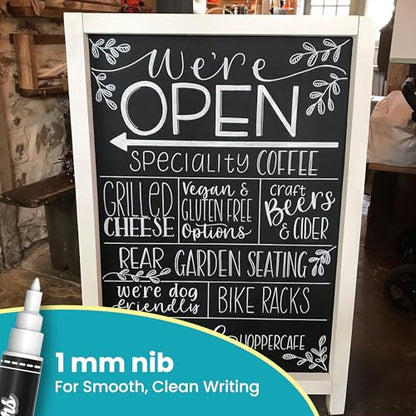 we're
OPEN
SPECIALITY COFFEE
GRILLED CHEESE
Vegan & GLUTEN FREE Options
craft Beers & CIDER
REAR GARDEN SEATING
we're dog friendly
BIKE RACKS
HOPPERCAFE
1 mm nib
For Smooth, Clean Writing